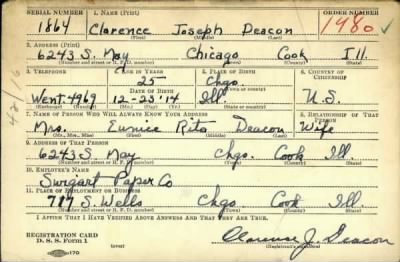 SERIAL NUMBER 1. NAME (Print) ORDER NUMBER
1864 Clarence Joseph Deacon 1980 ✓
(First) (Middle) (Last)
2. ADDRESS (Print)
6243 S. May Chicago Cook Ill.
(Number and street or R. F. D. number) (Town) (County) (State)
3. TELEPHONE 4. AGE IN YEARS 5. PLACE OF BIRTH 6. COUNTRY OF CITIZENSHIP
25 Chgo.
Went-4969 DATE OF BIRTH (Town or county)
12-25-'14 Ill. U.S.
(Exchange) (Number) (Mo.) (Day) (Yr.) (State or country)
7. NAME OF PERSON WHO WILL ALWAYS KNOW YOUR ADDRESS 8. RELATIONSHIP OF THAT PERSON
Mrs. Eunice Rita Deacon Wife
(Mr., Mrs., Miss) (First) (Middle) (Last)
9. ADDRESS OF THAT PERSON
6243 S. May Chgo. Cook Ill.
(Number and street or R. F. D. number) (Town) (County) (State)
10. EMPLOYER'S NAME
Swigart Paper Co
11. PLACE OF EMPLOYMENT OR BUSINESS
717 S. Wells Chgo. Cook Ill.
(Number and street or R. F. D. number) (Town) (County) (State)
I AFFIRM THAT I HAVE VERIFIED ABOVE ANSWERS AND THAT THEY ARE TRUE.
REGISTRATION CARD
D. S. S. Form 1 (over) Clarence J. Deacon
(Registrant's signature)